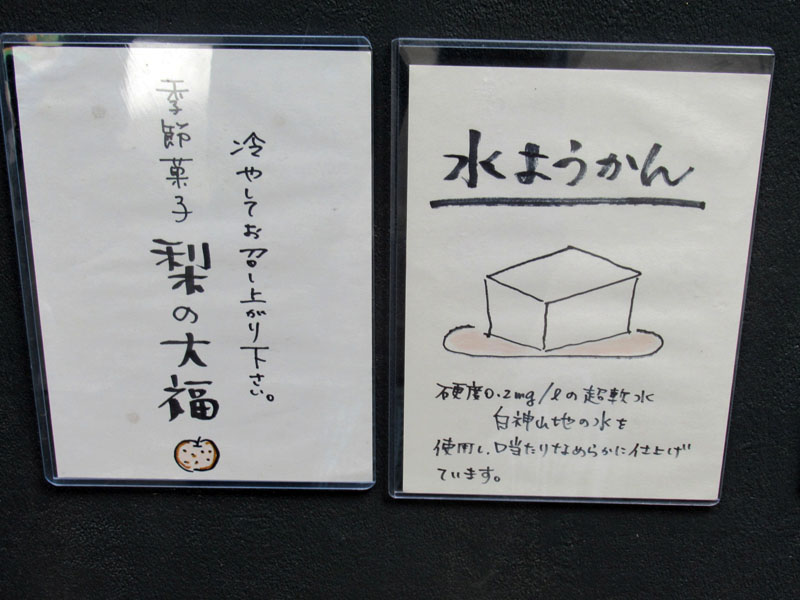 冷やしてお召し上がり下さい。
季節菓子 梨の大福
水ようかん
硬度0.2mg/ℓの超軟水
白神山地の水を
使用し、口当たりなめらかに仕上げ
ています。